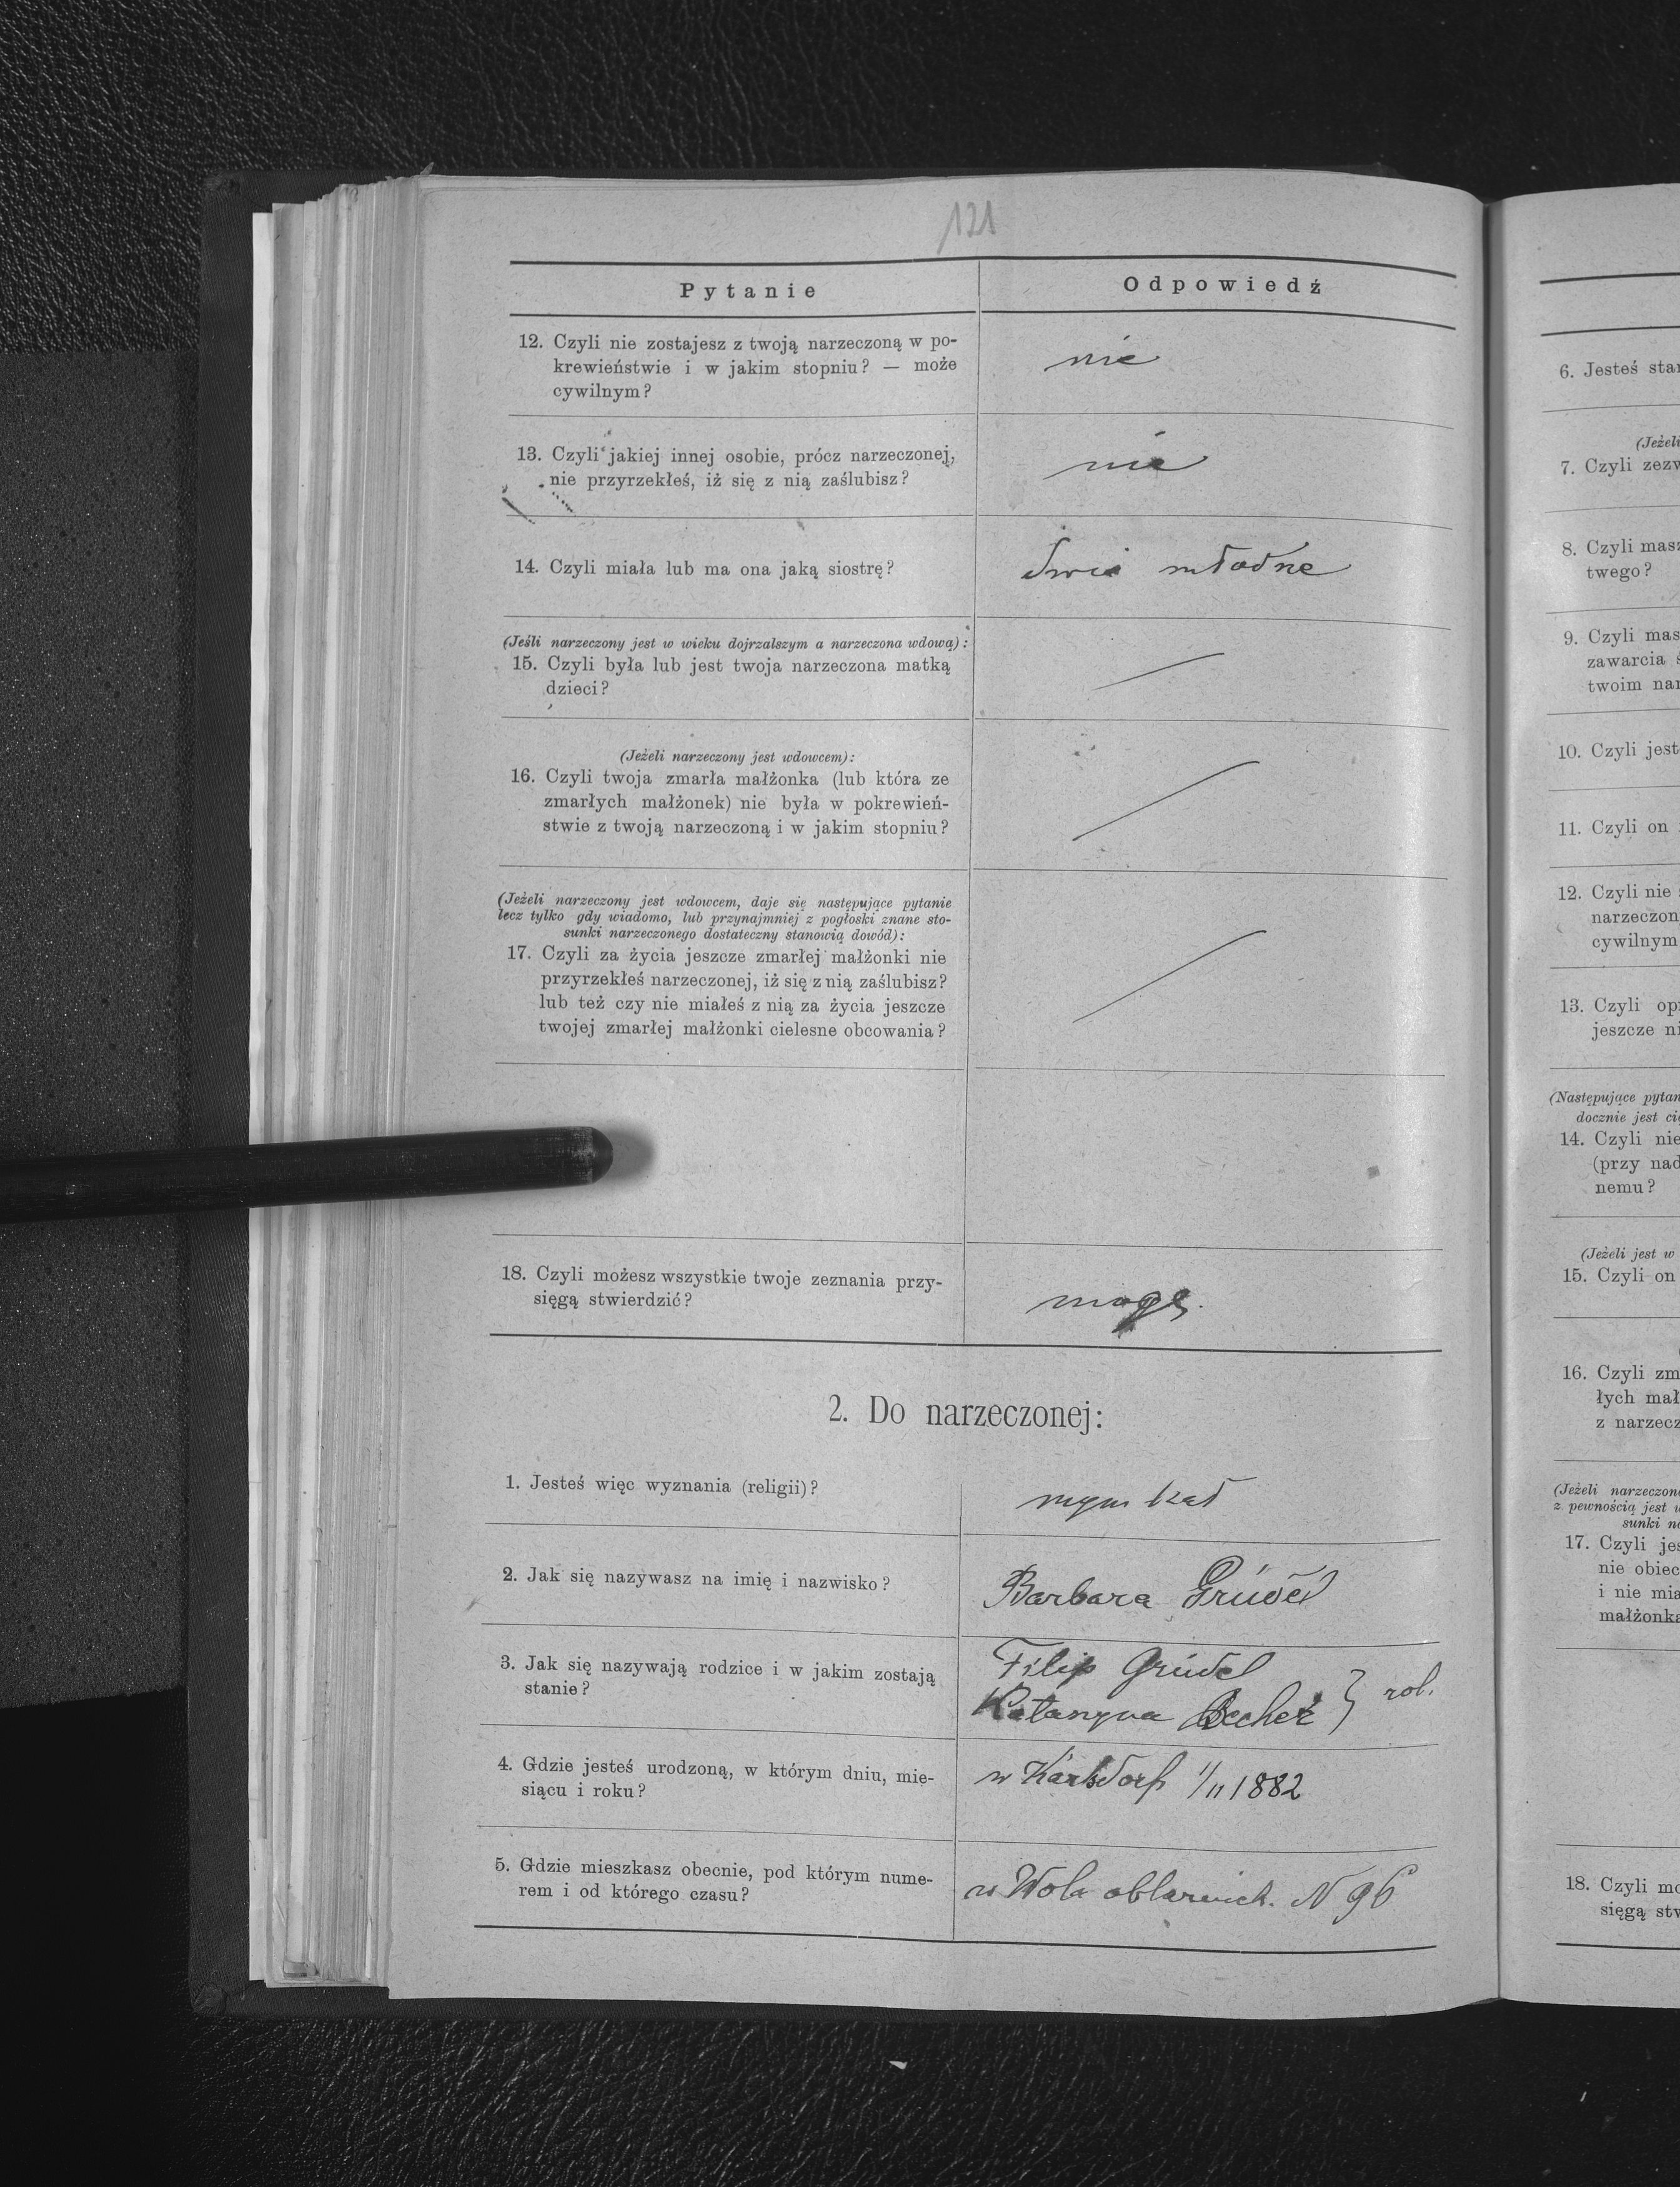 121
Pytanie
Odpowiedź
12. Czyli nie zostajesz z twoją narzeczoną w po-
krewieństwie i w jakim stopniu? — może
cywilnym?
nie
13. Czyli jakiej innej osobie, prócz narzeczonej,
nie przyrzekłeś, iż się z nią zaślubisz?
nie
14. Czyli miała lub ma ona jaką siostrę?
dwie młodne
(Jeśli narzeczony jest w wieku dojrzalszym a narzeczona wdową):
15. Czyli była lub jest twoja narzeczona matką
dzieci?
(Jeżeli narzeczony jest wdowcem):
16. Czyli twoja zmarła małżonka (lub która ze
zmarłych małżonek) nie była w pokrewień-
stwie z twoją narzeczoną i w jakim stopniu?
(Jeżeli narzeczony jest wdowcem, daje się następujące pytanie
lecz tylko gdy wiadomo, lub przynajmniej z pogłoski znane sto-
sunki narzeczonego dostateczny stanowią dowód):
17. Czyli za życia jeszcze zmarłej małżonki nie
przyrzekłeś narzeczonej, iż się z nią zaślubisz?
lub też czy nie miałeś z nią za życia jeszcze
twojej zmarłej małżonki cielesne obcowania?
18. Czyli możesz wszystkie twoje zeznania przy-
sięgą stwierdzić?
mogę.
2. Do narzeczonej:
1. Jesteś więc wyznania (religii)?
rzym kat
2. Jak się nazywasz na imię i nazwisko?
Barbara Grüdel
3. Jak się nazywają rodzice i w jakim zostają
stanie?
Filip Grüdel
Katarzyna Becher } rol.
4. Gdzie jesteś urodzoną, w którym dniu, mie-
siącu i roku?
w Karlsdorf 1/11 1882
5. Gdzie mieszkasz obecnie, pod którym nume-
rem i od którego czasu?
w Wola N 96
6. Jesteś
(Jeżeli
7. Czyli
8. Czyli masz
twego?
9. Czyli
zawarcia
twoim
10. Czyli jest
11. Czyli on
12. Czyli nie
narzeczon
cywilnym
13. Czyli
jeszcze
(Następujące
docznie jest
14. Czyli nie
(przy
nemu?
(Jeżeli jest w
15. Czyli on
16. Czyli
łych
z
(Jeżeli
z pewnością jest
sunki
17. Czyli
nie
i nie
małżonka
18. Czyli
sięgą